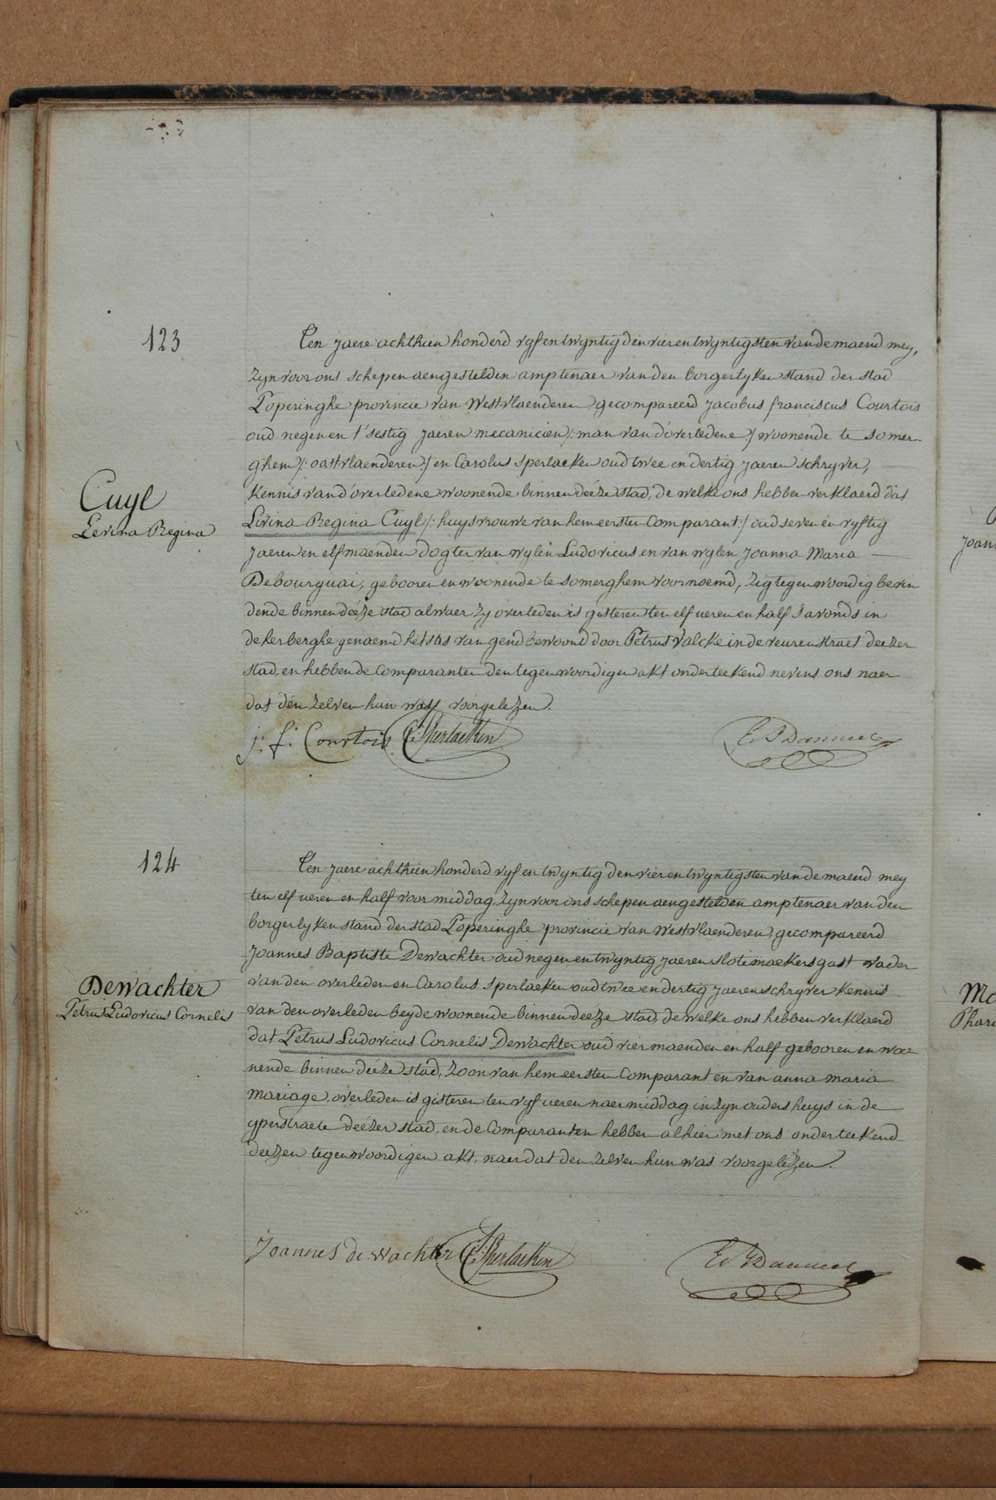 123
Ten jaere achthien honderd vyf en twyntig den vier en twyntigsten van de maend mey,
zyn voor ons schepen aengestelden amptenaer van den borgerlyken stand der stad
Poperinghe provincie van Westvlaenderen gecompareerd jacobus franciscus Courtois
oud negen en t'sestig jaeren mecanicien /: man van d'overledene :/ woonende te somer-
ghem /: oostvlaenderen :/ en Carolus Sperlaeken oud twee en dertig jaeren schryver,
Cuyl
Levina Regina
kennis van d'overledene woonende binnen deéze stad, de welke ons hebben verklaerd dat
Livina Regina Cuyl /: huysvrouwe van hem eersten Comparant :/ oud seven en vyftig
jaeren en elf maenden dogter van wylen Ludovicus en van wylen Joanna Maria
Debourguai, gebooren en woonende te somerghem voornoemd, zig tegenwoordig bevin
dende binnen deéze stad alwaer zy overleden is gisteren ten elf ueren en half s'avonds in
de herberghe genaemd het stis van gend bewoond door Petrus Valcke in de veurenstraet deézer
stad, en hebben de Comparanten den tegenwoordigen akt onderteekend nevens ons naer
dat den zelven hun was voorgelezen.
j: f: Courtois C: Sperlaeken
124
Ten jaere achthien honderd vyf en twyntig den vier en twyntigsten van de maend mey
ten elf ueren en half voor middag, zyn voor ons schepen aengestelden amptenaer van den
borgerlyken stand der stad Poperinghe provincie van Westvlaenderen gecompareerd
Joannes Baptiste Dewachter oud negen en twyntig jaeren slotemaekersgast vader
Dewachter
Petrus Ludovicus Cornelis
van den overleden en Carolus Sperlaeken oud twee en dertig jaeren schryver kennis
van den overleden beyde woonende binnen deéze stad, de welke ons hebben verklaerd
dat Petrus Ludovicus Cornelis Dewachter oud vier maenden en half gebooren en woo
nende binnen deéze stad, zoon van hem eersten Comparant en van anna maria
Mariage, overleden is gisteren ten vyf ueren naer middag in zyn ouders huys in de
yperstraete deézer stad, en de Comparanten hebben alhier met ons onderteekend
deézen tegenwoordigen akt, naer dat den zelven hun was voorgelézen.
Joannes de wachter C: Sperlaeken